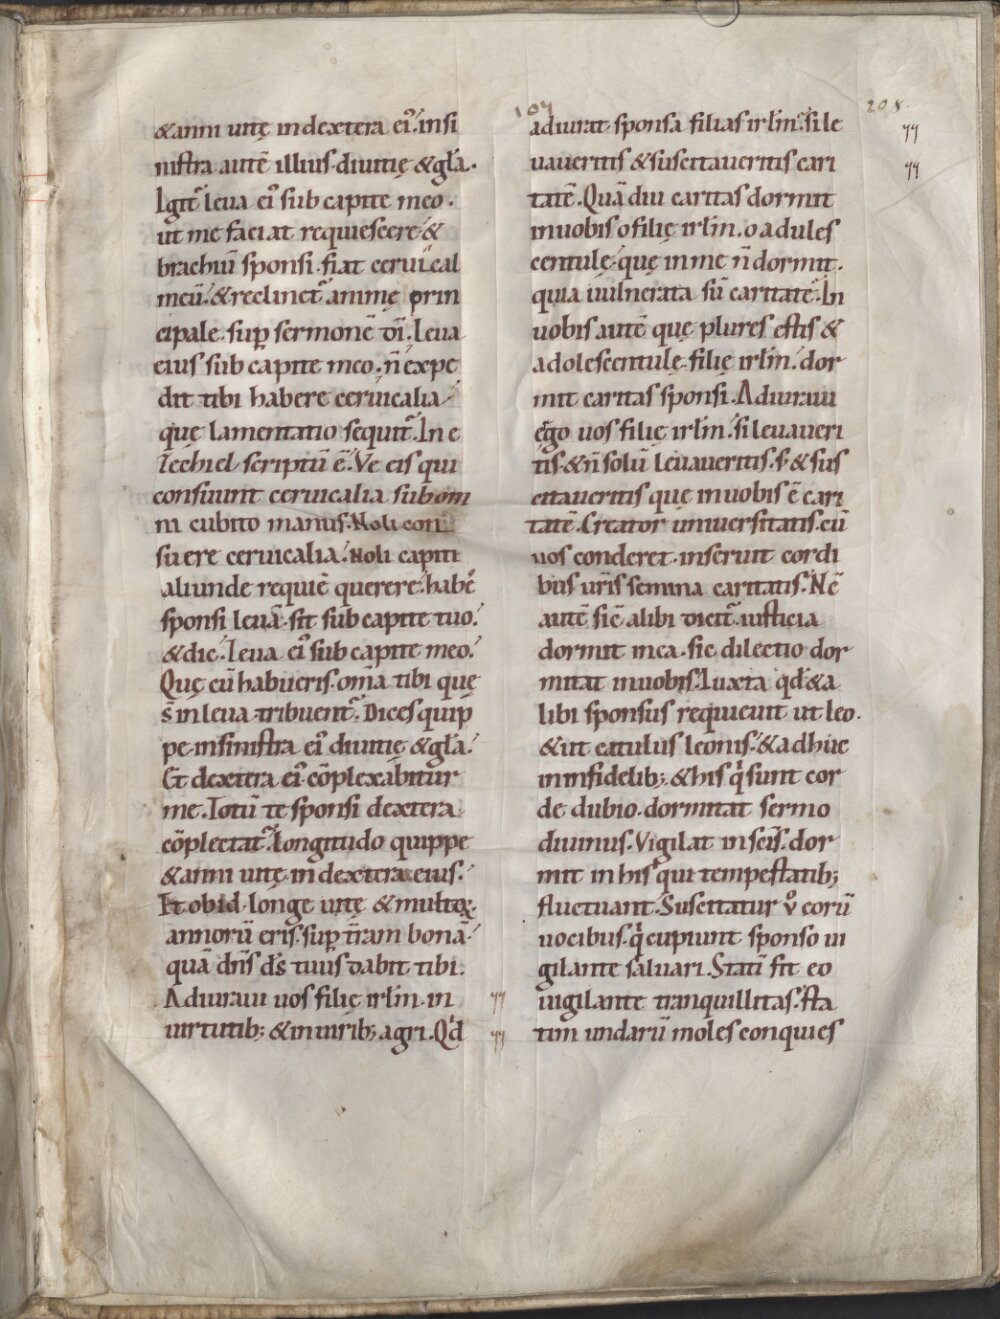 107
208.
&anni uitę in dextera ei᾽. in si
nistra autē illius diuitię &gła.
Igit̄ leua ei᾽ sub capite meo.
ut me faciat requiescere &
brachiū sponsi fiat ceruical
meū. &reclinet᾽ animę prin
cipale sup̱ sermonē dı̄. Leua
eius sub capite meo. n̄ expe
dit tibi habere ceruicalia
quę lamentatio sequit᾽. In e
zechiel scriptū ē. Ve eis qui
consuunt ceruicalia sub om
ni cubito manus. Noli con
suere ceruicalia. Noli capiti
aliunde requiē querere. habe᾽
sponsi leuā. sit sub capite tuo.
&dic. Leua ei᾽ sub capite meo.
Quę cū habueris. om̄a tibi quę
s̄ in leua tribuent᾽. Dices quip
pe. in sinistra ei᾽ diuitię &gła.
Et dextera ei᾽ cōplexabitur
me. Totū te sponsi dextera
cōplectat᾽. Longitudo quippe
&anni uitę. in dextera eius.
Et ob id. longe uitę &multoꝝ
annorū eris. sup̱ t̄ram bonā
quā dn̄s d̄s tuus dabit tibi.
Adiuraui uos filię irl̄m. in
uirtutib; &in uirib; agri. Qd̵
adiurat sponsa filias irl̄m. si le
uaueritis &suscitaueritis cari
tatē. Quā diu caritas dormit
in uobis o filię irl̄m. o adules
centulę. quę in me n̄ dormit.
quia uulnerata sū caritate. In
uobis autē quę plures estis &
adolescentulę. filię irl̄m. dor
mit caritas sponsi. Adiuraui
ego uos filię irl̄m. si leuaueri
tis. &n̄ solū leuaueritis. s; &sus
citaueritis quę in uobis ē cari
tatē. Creator uniuersitatis. cū
uos conderet. inseruit cordi
bus ur̄is semina caritatis. Nc̄
autē sic̄ alibi dicit᾽. iusticia
dormit in ea. sic dilectio dor
mitat in uobis. Iuxta qd̵ &a
libi sponsus requieuit ut leo.
&ut catulus leonis. &adhuc
in infidelib; &his q̇ sunt cor
de dubio. dormitat sermo
diuinus. Vigilat in sc̄is. dor
mit in his qui tempestatib;
fluctuant. Suscitatur v̊ eorū
uocibus. q̇ cupiunt sponso ui
gilante saluari. Statī fit eo
uigilante tranquillitas. sta
tim undarū moles conquies